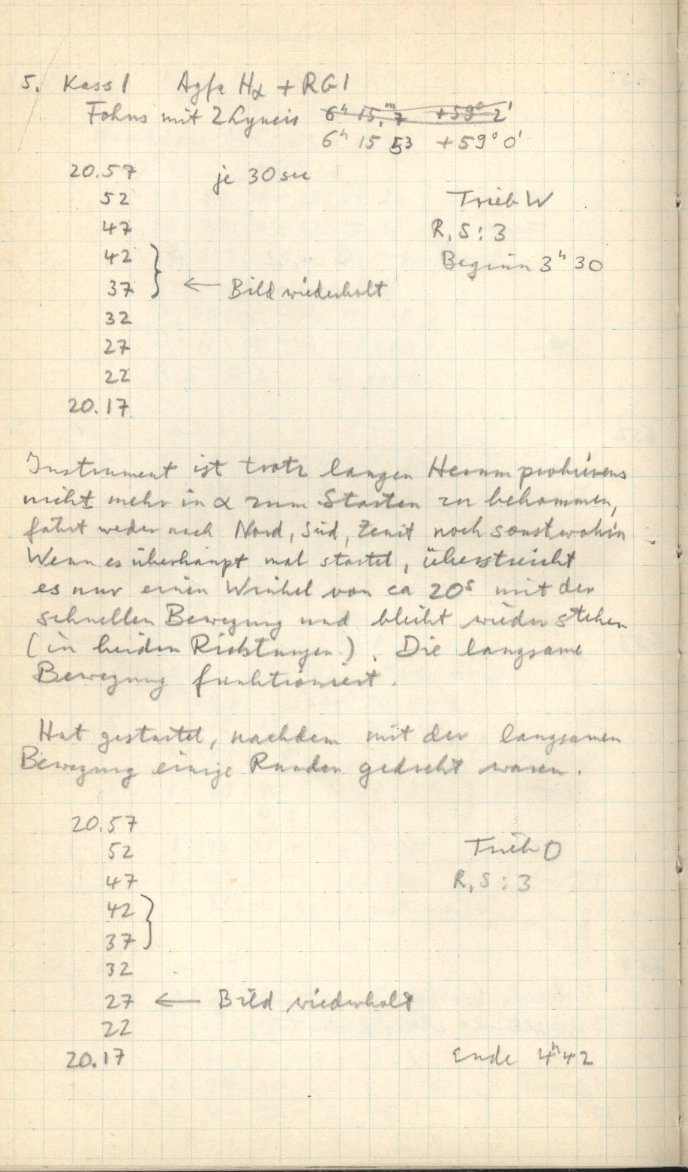 5. Kass 1 Agfa Hα + RG1
Fokus mit 2 Lyncis 6ʰ 15,ᵐ7 +59° 2'
6ʰ 15 53 +59° 0'
20.57 je 30 sec
52 Trieb W
47 R, S: 3
42 Beginn 3ʰ 30
37 } ← Bild wiederholt
32
27
22
20.17
Instrument ist trotz langen Herumprobierens
nicht mehr in α zum Starten zu bekommen,
fährt weder nach Nord, Süd, Zenit noch sonstwohin
Wenn es überhaupt mal startet, überstreicht
es nur einen Winkel von ca 20ˢ mit der
schnellen Bewegung und bleibt wieder stehen
(in beiden Richtungen). Die langsame
Bewegung funktioniert.
Hat gestartet, nachdem mit der langsamen
Bewegung einige Runden gedreht waren.
20.57
52 Trieb O
47 R, S: 3
42 }
37
32
27 ← Bild wiederholt
22
20.17 Ende 4ʰ42